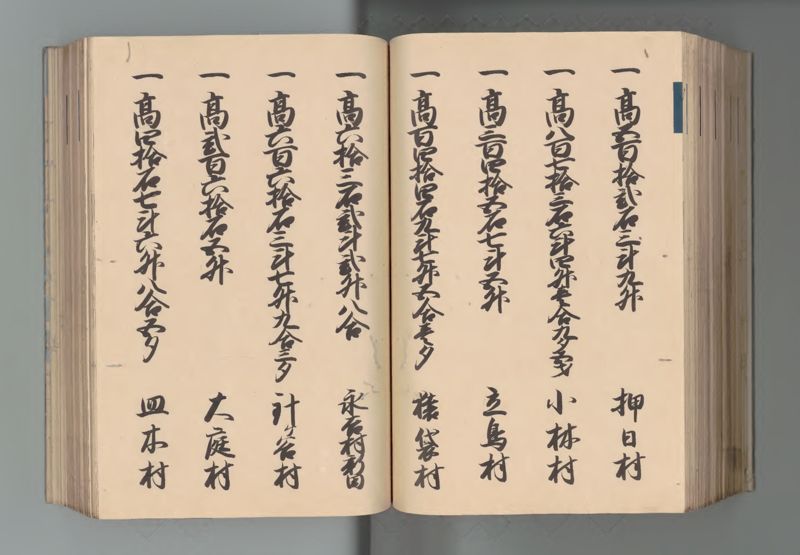 一 高五百拾弐石三斗九升 押日村
一 高八百七拾三石六斗四升壱合九夕 小林村
一 高三百四拾五石七斗五升 立鳥村
一 高百四拾四石九斗七升五合壱夕 袋村
一 高六拾三石弐斗弐升八合 永吉村新田
一 高六百六拾石三斗七升九合三夕 針ヶ谷村
一 高弐百六拾石五升 大庭村
一 高四拾石七斗六升八合五夕 皿木村